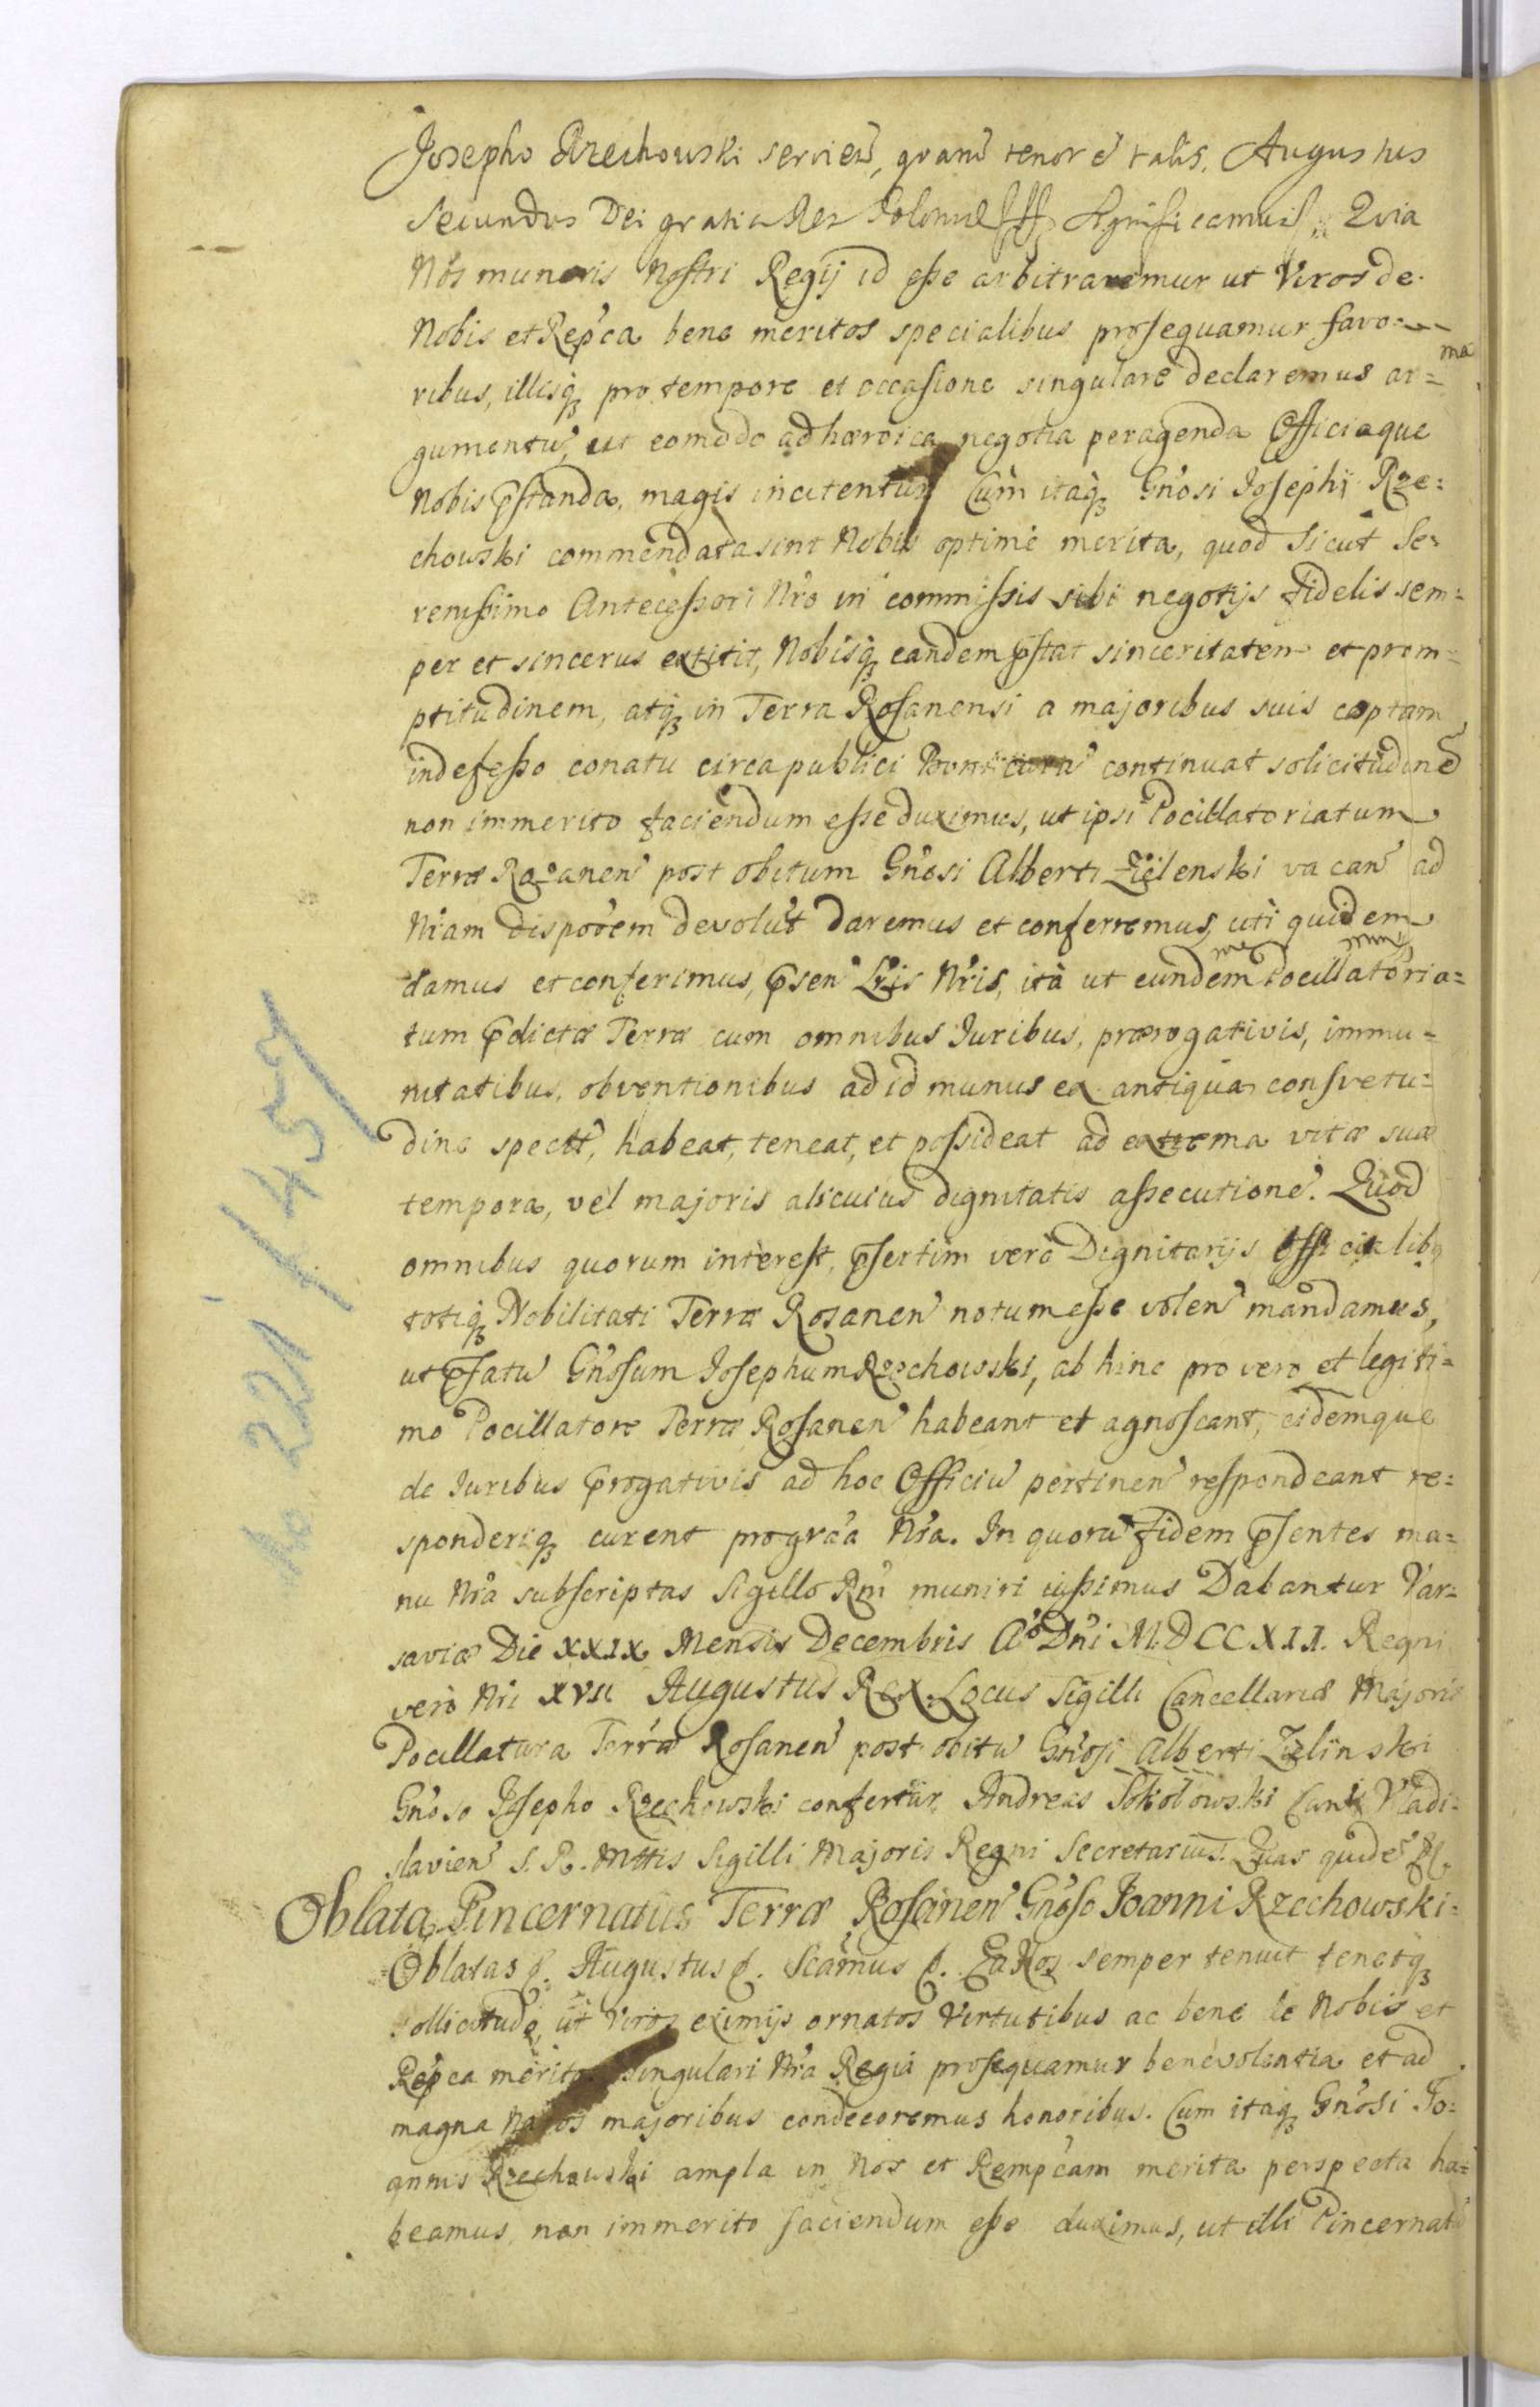 Josepho Rzechowski servien̄, quarũ tenor ẽ talis. Augustus
Secundus Dei gratia Rex Poloniæ Significamus Quia
Nos muneris Nostri Regij id esse arbitraremur ut Viros de
Nobis et Repća bene meritos specialibus prosequamur favo=
ribus, illisq₃ pro tempore et occasione singulare declaremus ar=
ma
gumentũ, ut eomodo ad hæroica negotia peragenda Officiaque
Nobis p̃standa, magis incitentur Cum itaq₃ Gńosi Josephi Rze=
chowski commendata sint Nobis optime merita, quod sicut Se=
renissimo Antecessori Nŕo in commissis sibi negotijs fidelis sem=
per et sincerus extitit, Nobisq₃ eandem p̃stat sinceritatem et prom=
ptitudinem, atq₃ in Terra Rosanensi a majoribus suis cæptam
indefesso conatu circa publici boni curã continuat solicitudinẽ
non immerito faciendum esse duximus, ut ipsi Pocillatoriatum
Terræ Rozanen̄ post obitum Gńosi Alberti Zielenski vacan̄ ad
Nŕam dispoŕem devolut̃ daremus et conferremus, uti quidem
damus et conferimus, p̃sen̄ Lŕis Nŕis, ità ut eundem Pocillatoria=
tum p̃dictæ Terræ cum omnibus Juribus, prærogativis, immu=
nitatibus, obventionibus ad id munus ex antiqua consvetu=
dine spectt̃, habeat, teneat, et possideat ad extrema vitæ suæ
tempora, vel majoris alicuius dignitatis assecutionẽ. Quod
omnibus quorum interest, p̃sertim verò Dignitarijs Officialib₉
totiq₃ Nobilitati Terræ Rosanen̄ notum esse volen̄ mandamus,
ut p̃fatũ Gńosum Josephum Rzechowski, ab hinc pro vero et legiti=
mo Pocillatore Terræ Rosanen̄ habeant et agnoscant, eidemque
de Juribus p̃rogativis ad hoc Officiũ pertinen̄ respondeant re=
sponderiq₃ curent pro grãa Nŕa. In quorũ fidem p̃sentes ma=
nu Nŕa subscriptas Sigillo Rńi muniri iussimus Dabantur Var=
saviæ Die XXIX Mensis Decembris Aõ Dńi M.DCCXII. Regni
verò Nŕi XVII Augustus Rex. Locus Sigilli Cancellariæ Majoris
Pocillatura Terræ Rosanen̄ post obitũ Gńosi Alberti Zielinski
Gńoso Josepho Rzechowski confertur, Andreas Sokolowski Can: Vladi=
slavien̄ S. R. Mttis Sigilli Majoris Regni Secretarius. Quas quidẽ
Oblata Pincernatus Terræ Rosanen̄ Gńoso Joanni Rzechowski=
Oblatas p. Augustus p. Scamus p. Ea Nos semper tenuit tenetq₃
sollicitudo, ut Viros eximijs ornatos Virtutibus ac bene de Nobis et
Repća meritos singulari Nŕa Regia prosequamur benevolentia et ad
magna Natos majoribus condecoremus honoribus. Cum itaq₃ Gńosi Jo=
annis Rzechowski ampla in Nos et Rempćam merita perspecta ha=
beamus, non immerito faciendum esse duximus, ut illi Pincernatũ
No 221 / 457